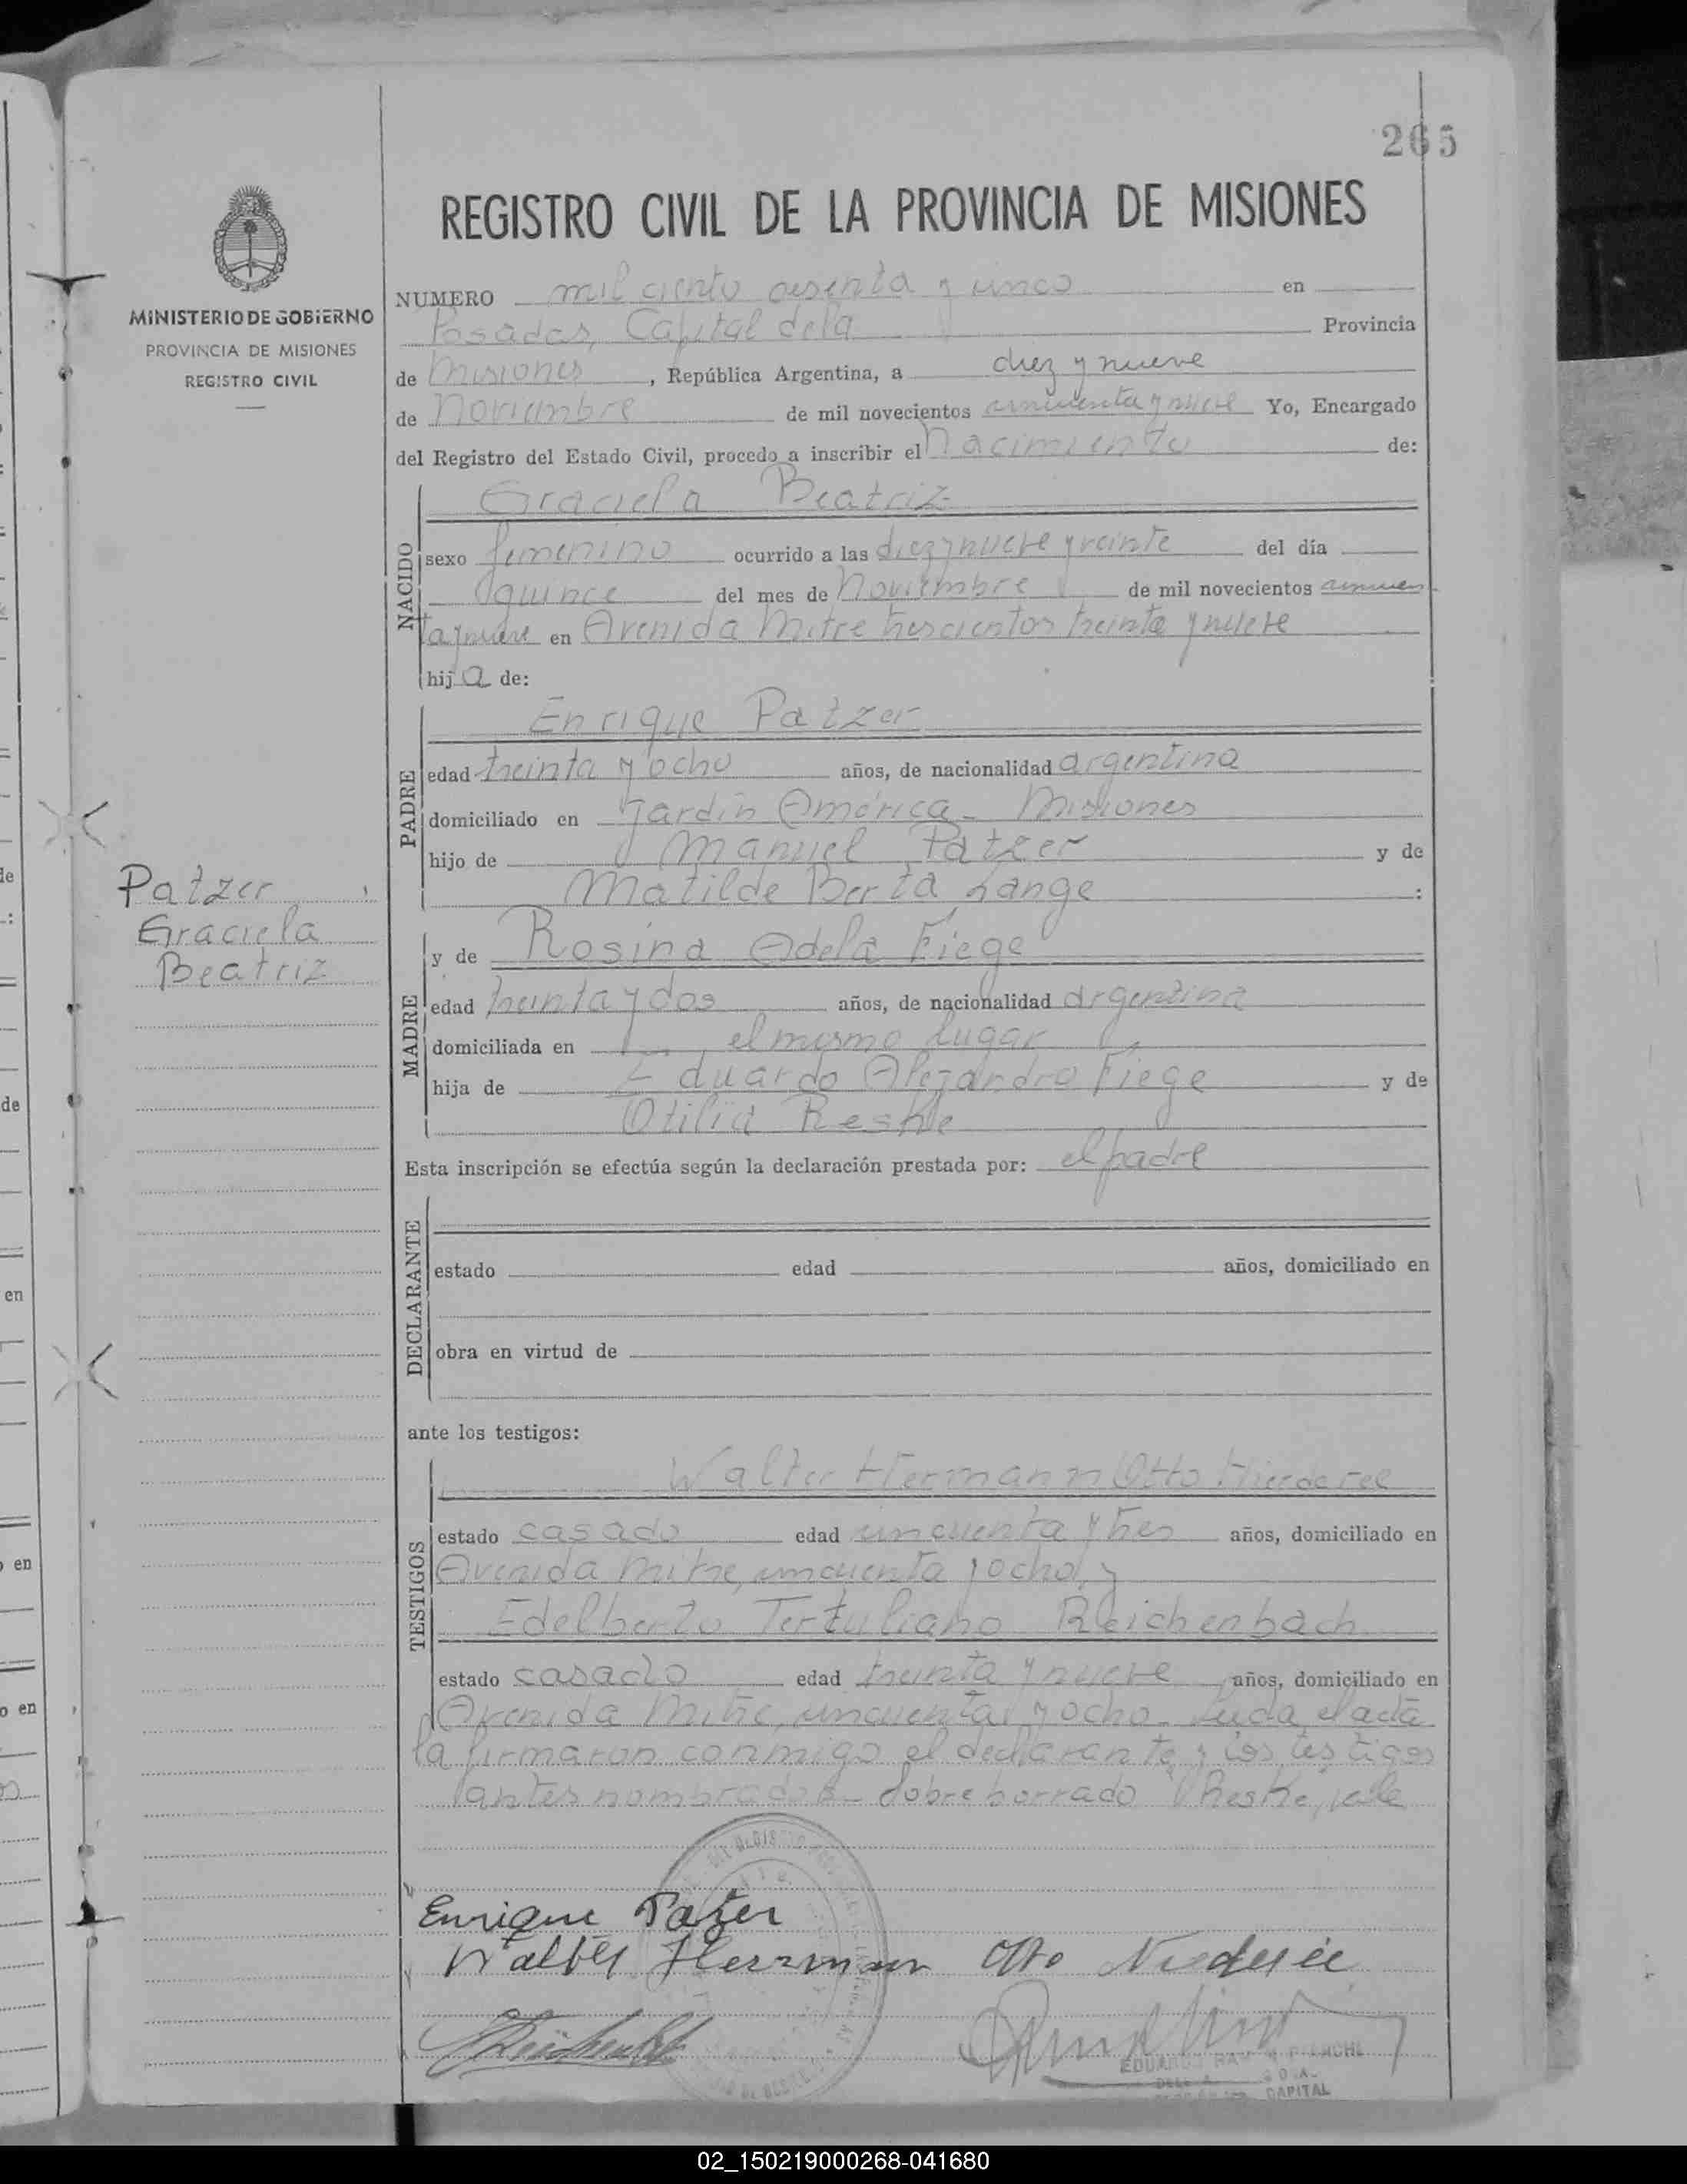 265
REGISTRO CIVIL DE LA PROVINCIA DE MISIONES
MINISTERIO DE GOBIERNO
PROVINCIA DE MISIONES
REGISTRO CIVIL
NUMERO mil ciento sesenta y cinco en
Posadas, Capital dela Provincia
de Misiones, República Argentina, a diez y nueve
de Noviembre de mil novecientos cincuenta y nueve Yo, Encargado
del Registro del Estado Civil, procedo a inscribir el Nacimiento de:
NACIDO
Graciela Beatriz
sexo femenino ocurrido a las diez y nueve y veinte del día
quince del mes de Noviembre de mil novecientos cincuen
ta y nueve en Avenida Mitre trescientos treinta y nueve
hija de:
PADRE
Enrique Patzer
edad treinta y ocho años, de nacionalidad argentina
domiciliado en Jardín América - Misiones
hijo de Manuel Patzer y de
Matilde Berta Lange :
Patzer
Graciela
Beatriz
MADRE
y de Rosina Adela Fiege
edad treinta y dos años, de nacionalidad argentina
domiciliada en el mismo lugar
hija de Eduardo Alejandro Fiege y de
Otilia Reske
Esta inscripción se efectúa según la declaración prestada por: el padre
DECLARANTE
estado edad años, domiciliado en
obra en virtud de
ante los testigos:
TESTIGOS
Walter Hermann Otto
estado casado edad cincuenta y tres años, domiciliado en
Avenida Mitre, cincuenta y ocho y
Edelberto Tertuliano Reichenbach
estado casado edad treinta y nueve años, domiciliado en
Avenida Mitre, cincuenta y ocho - Leida el acta
la firmaron conmigo el declarante y los testigos
antes nombrados - Sobre borrado "Reske", vale
Enrique Patzer
Walter Herrmann Otto
EDUARDO
CAPITAL
02_150219000268-041680